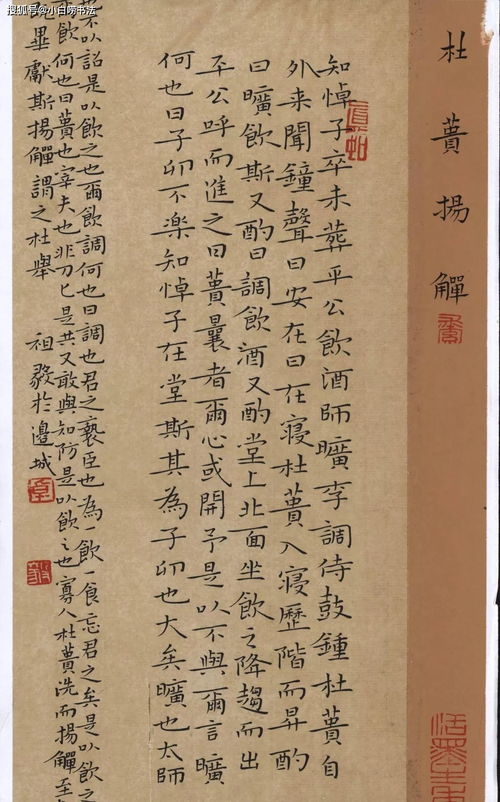 搜狐号@小白唠书法
杜蕢揚觶
知悼子卒未葬平公飲酒師曠李調侍鼓鍾杜蕢自
外来聞鐘聲曰安在曰在寝杜蕢入寝歷階而昇酌
曰曠飲斯又酌曰調飲酒又酌堂上北面坐飲之降趨而出
平公呼而進之曰蕢曩者爾心或開予是以不與爾言曠
何也曰子卯不楽知悼子在堂斯其為子卯也大矣曠也太師
也不以詔是以飲之也爾飲調何也曰調也君之褻臣也為一飲一食忘君之矣是以飲之
飲何也曰蕢也宰夫也非刀匕是共又敢與知防是以飲之也寡人杜蕢洗而揚觶至
畢獻斯揚觶謂之杜舉 祖毅於邊城